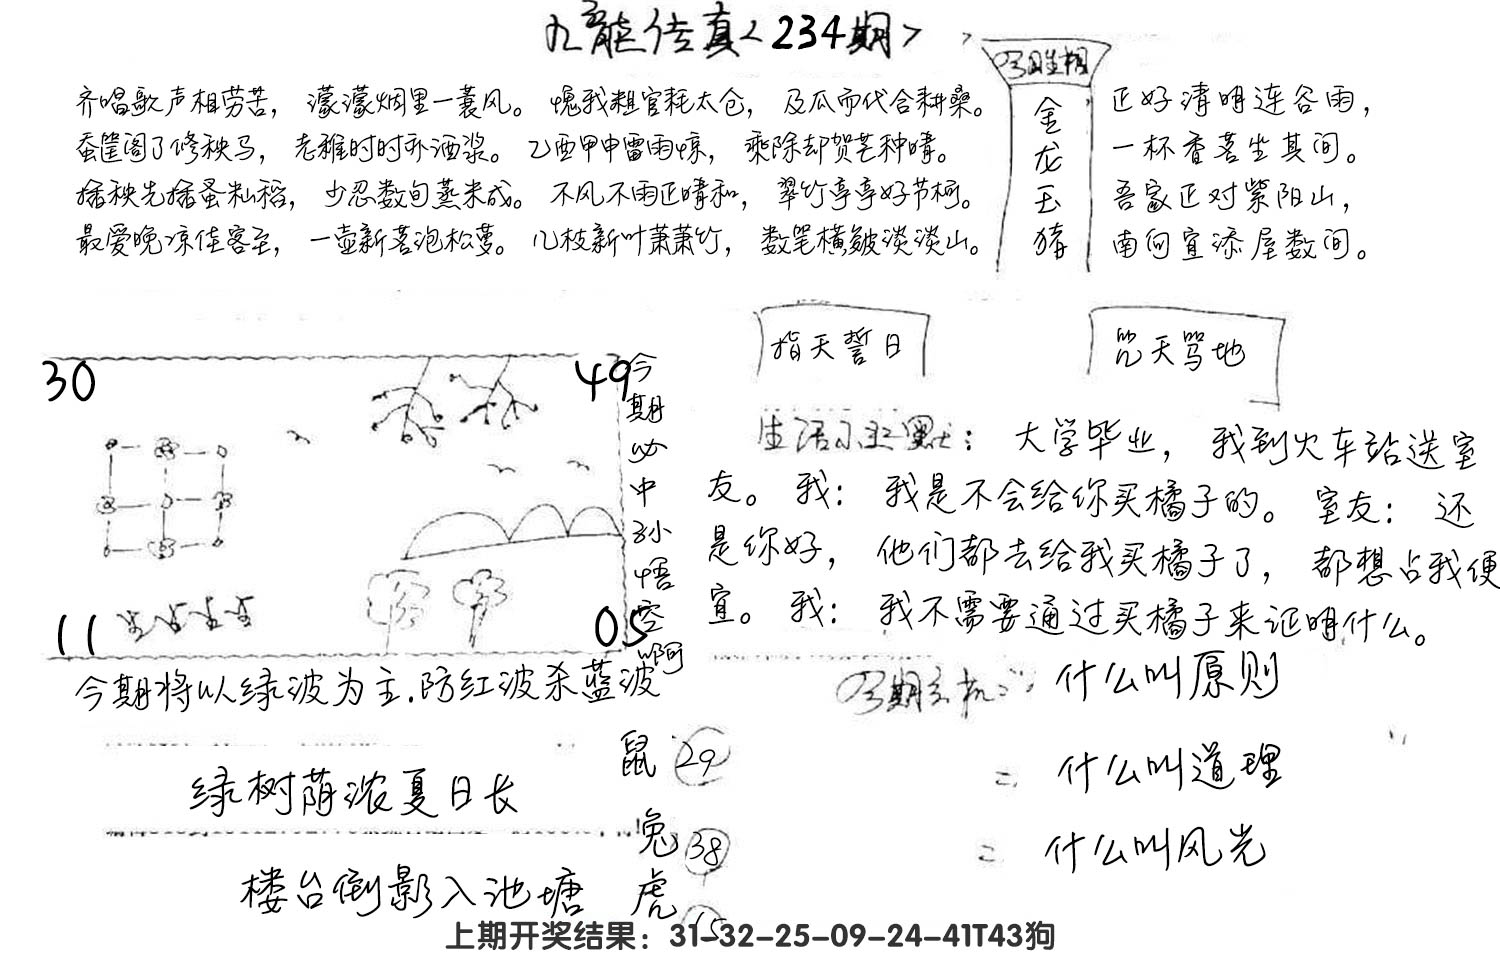 九龍传真<234期>
今日生相
金龙玉猪
齐唱歌声相劳苦，濛濛烟里一蓑风。愧我粗官耗太仓，及瓜而代合耕桑。
蚕筐阁了修秧马，老稚时时补酒浆。乙酉甲申雷雨惊，乘除却贺芒种晴。
插秧先插蚤籼稻，少忍数旬蒸米成。不风不雨正晴和，翠竹亭亭好节柯。
最爱晚凉佳客至，一壶新茗泡松萝。几枝新叶萧萧竹，数笔横皴淡淡山。
正好清明连谷雨，
一杯香茗坐其间。
吾家正对紫阳山，
南向宜添屋数间。
指天誓日
咒天骂地
30
49
11
05
今期必中孙悟空啊
生活小幽默：大学毕业，我到火车站送室
友。我：我是不会给你买橘子的。室友：还
是你好，他们都去给我买橘子了，都想占我便
宜。我：我不需要通过买橘子来证明什么。
今期将以绿波为主.防红波杀蓝波
今期玄机：什么叫原则
什么叫道理
什么叫风光
绿树荫浓夏日长
楼台倒影入池塘
鼠 29
兔 38
虎 15
上期开奖结果：31-32-25-09-24-41T43狗